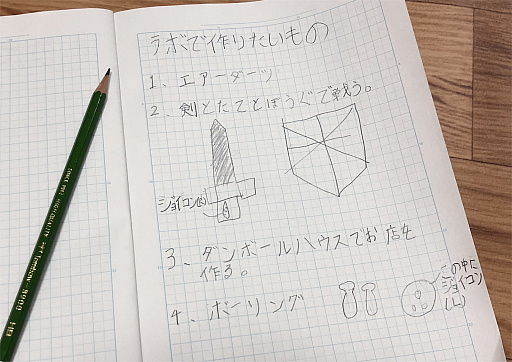 ラボで作りたいもの
1、エアーダーツ
2、剣とたてとぼうぐで戦う。
ジョイコン(R)
3、ダンボールハウスでお店を
作る。
4、ボーリング
この中に
ジョイコン
(L)